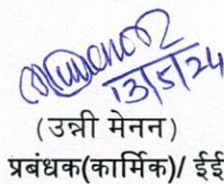 13/5/24
(उन्नी मेनन)
प्रबंधक(कार्मिक)/ ईई